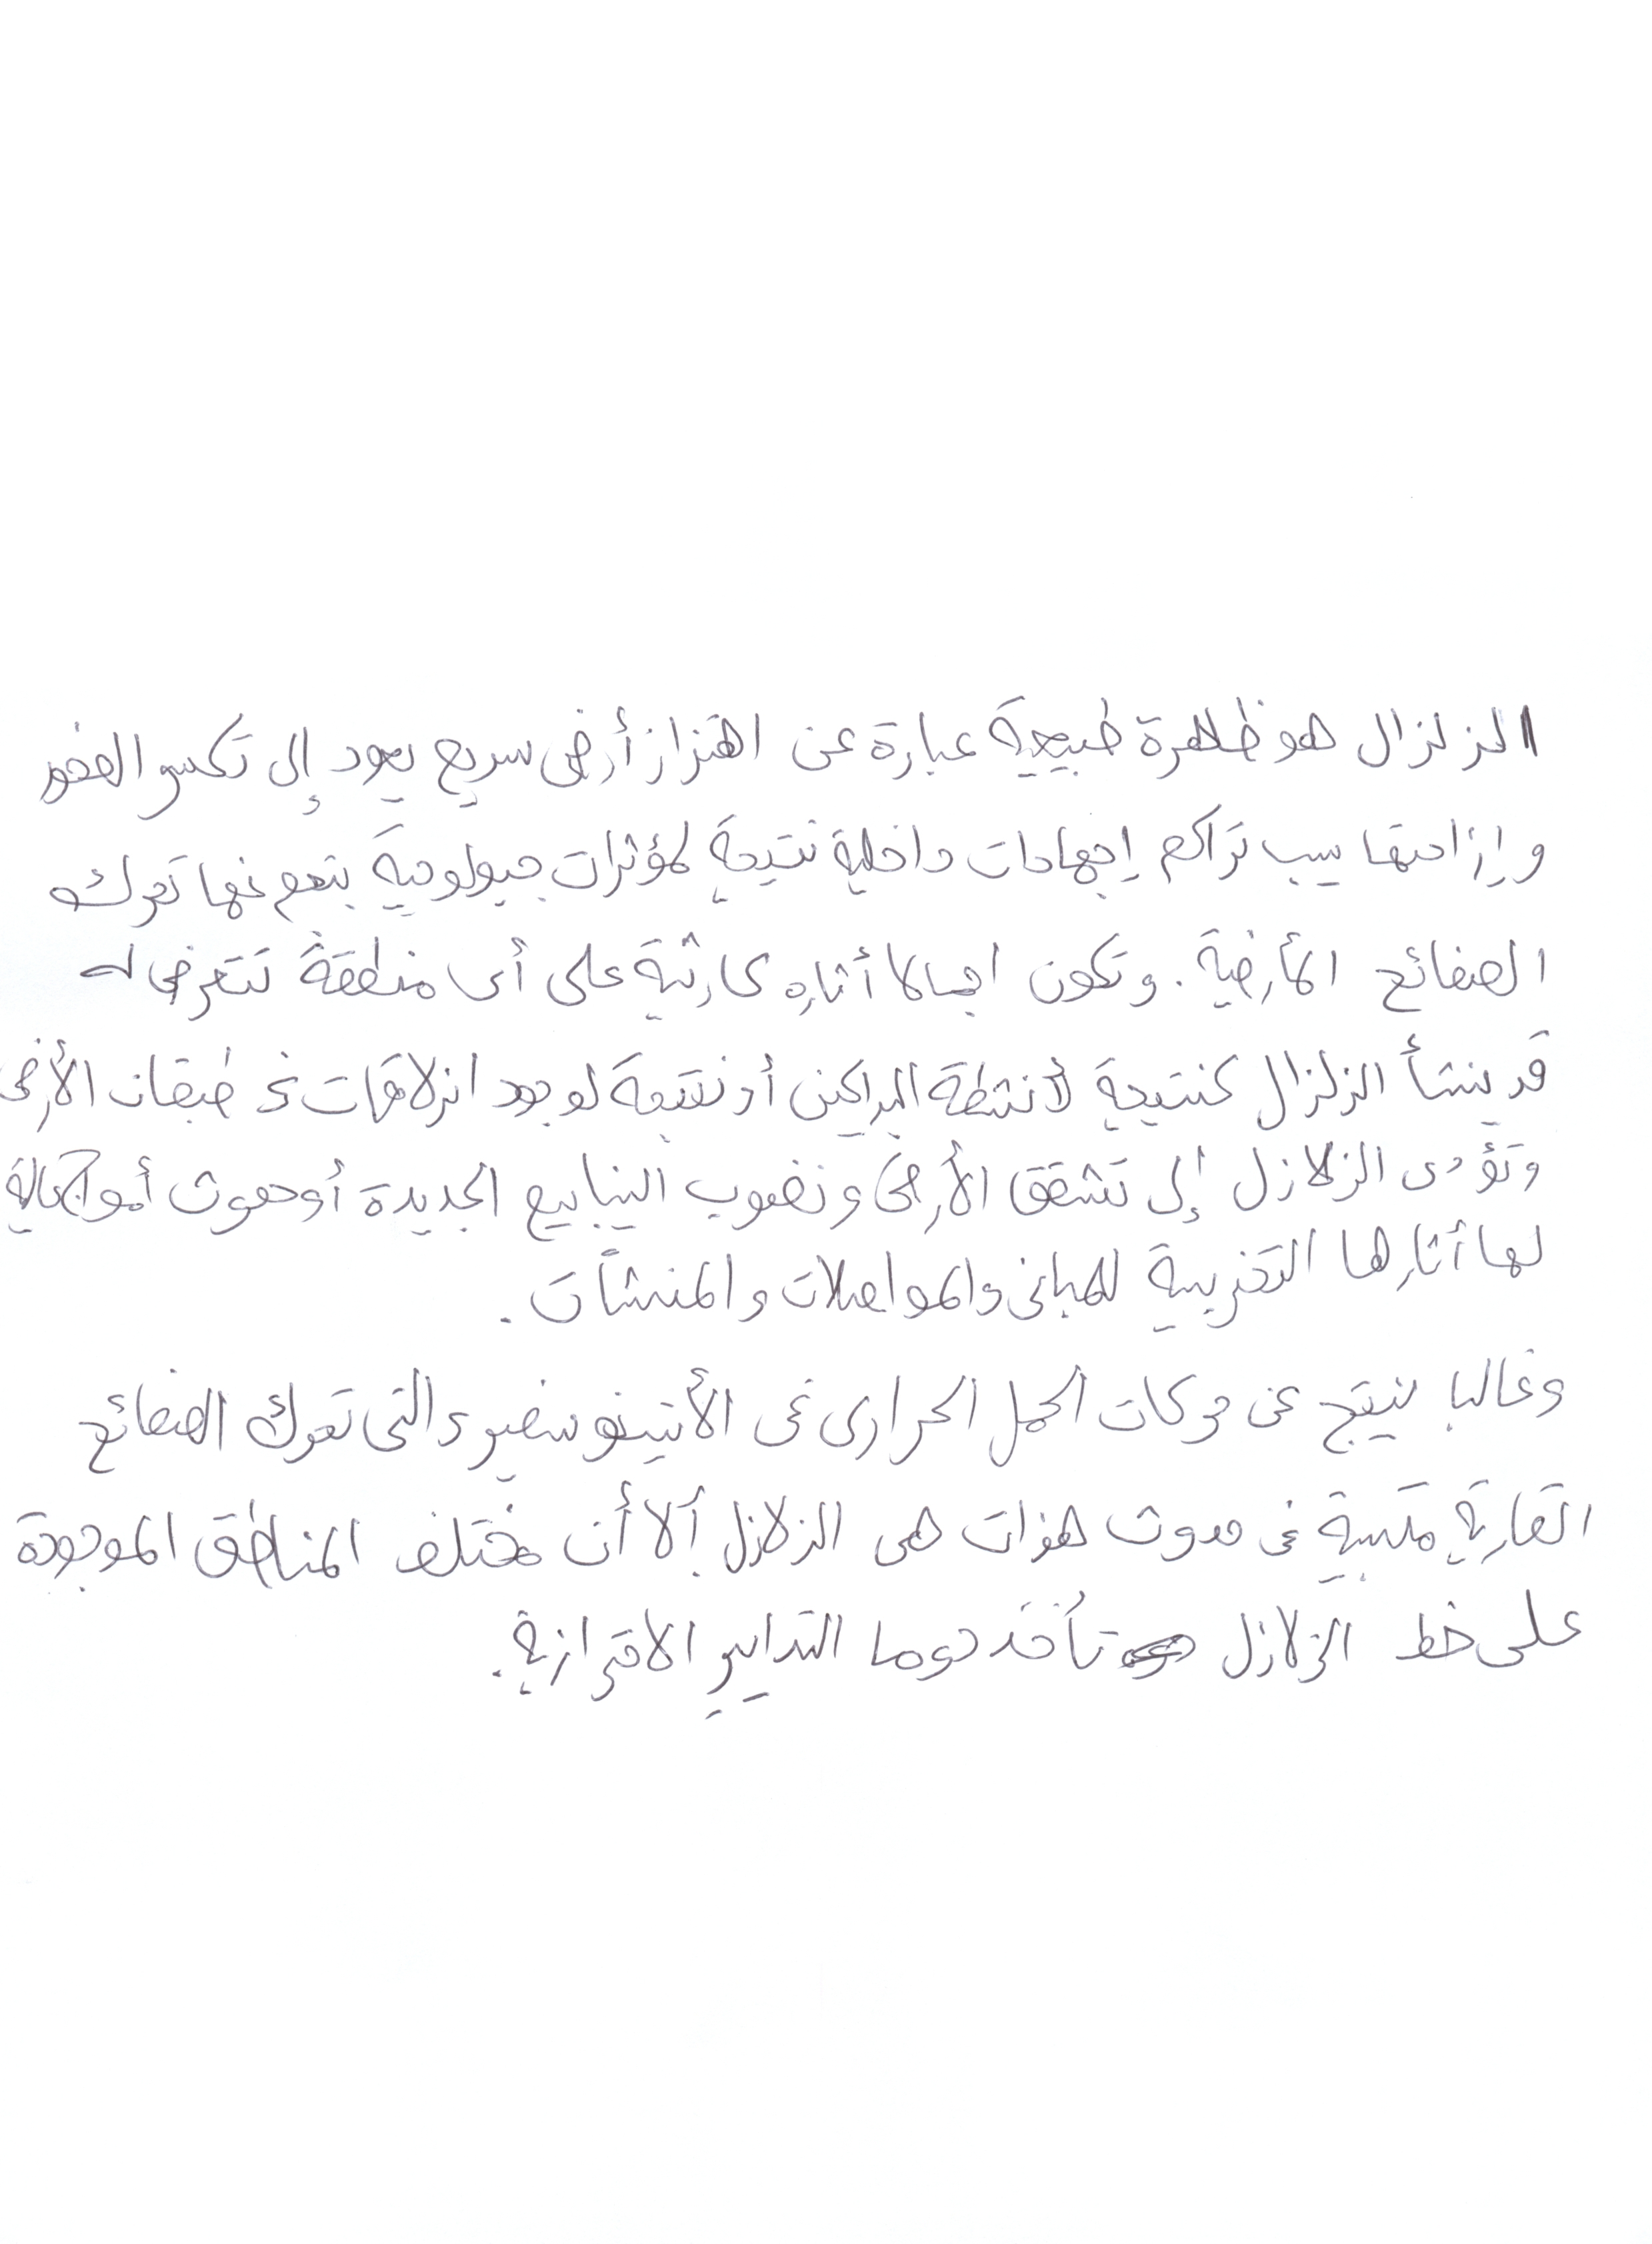 الزلزال هو ظاهرة طبيعية عبارة عن اهتزاز أرضى سريع يعود إلى تكسر الصخور
وإزاحتها بسبب تراكم إجهادات داخلية نتيجة لمؤثرات جيولوجية ينجم عنها تحرك
الصفائح الأرضية. وتكون اجمالا أثاره كارثية على أى منطقة تتعرض له
قد ينشأ الزلزال كنتيجة لأنشطة البراكين أو نتيجة لوجود انزلاقات فى طبقات الأرض
وتؤدى الزلازل إلى تشقق الأرض ونضوب الينابيع الجديدة أو حدوث أمواج عالية
لها أثارها التخريبية للمبانى والمواصلات والمنشأت.
وغالبا ينتج عن حركات الحمل الحرارى فى الأتينوسفير والتى تحرك الصفائح
القارية متسببة فى حدوث هزات هى الزلازل ألا أن مختلف المناطق الموجودة
على خط الزلازل تأخذ دوما التدابير الاحترازية.